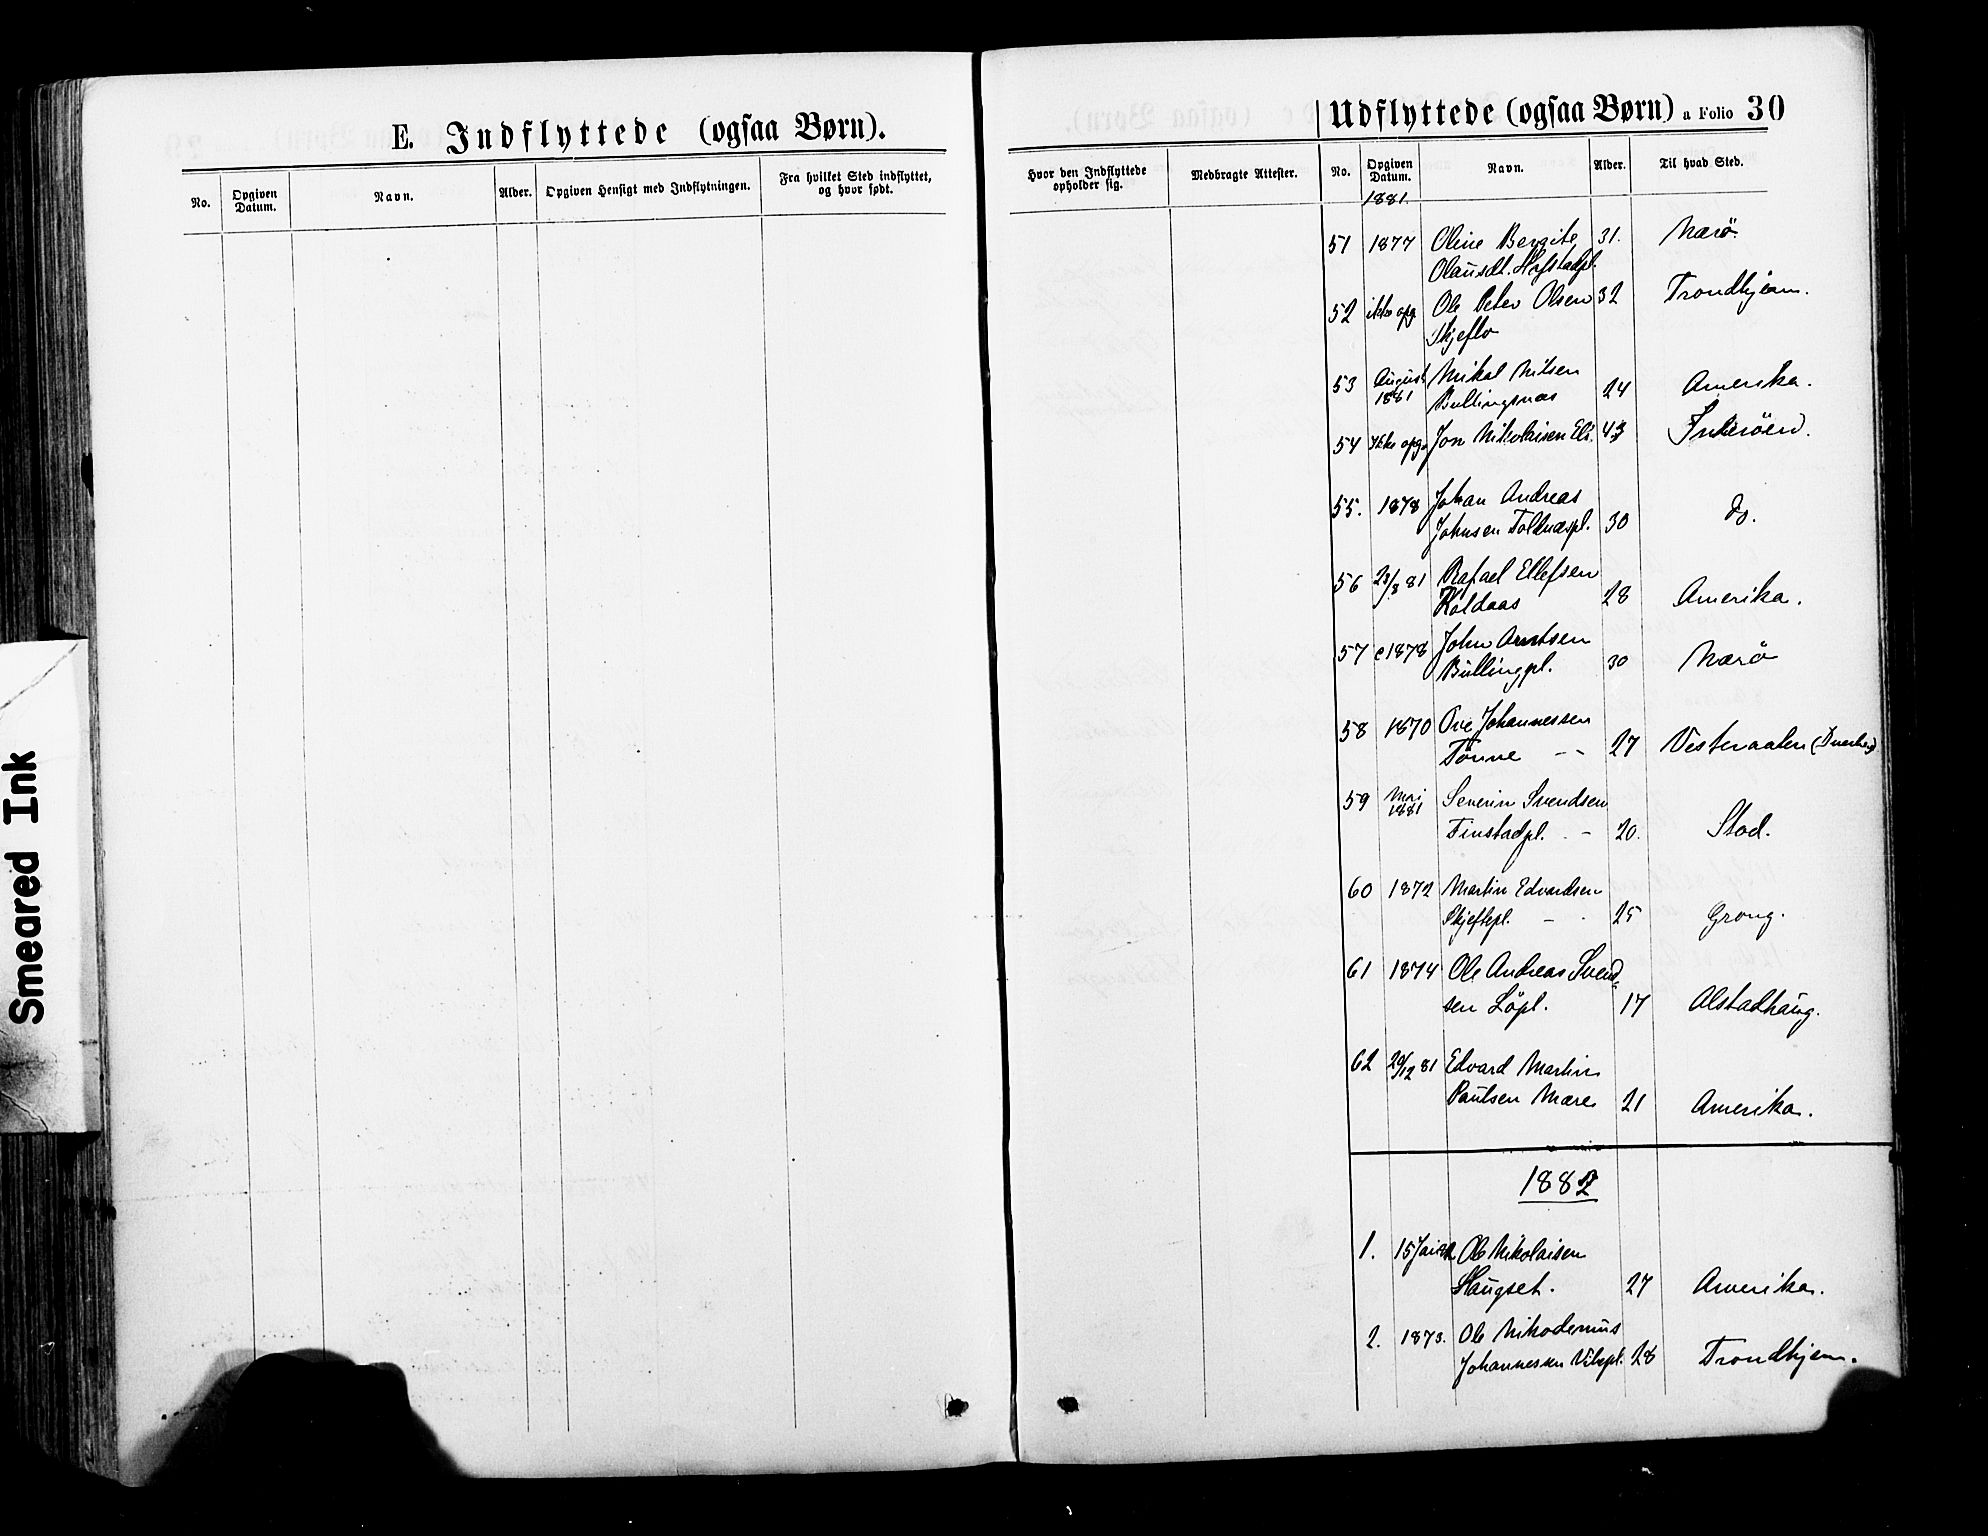 E. Indflyttede (ogsaa Børn).
No.
Opgiven Datum.
Navn.
Alder.
Opgiven Hensigt med Indflytningen.
Fra hvilket Sted indflyttet, og hvor født.
Hvor den Indflyttede opholder sig.
Medbragte Attester.
Udflyttede (ogsaa Børn) a Folio 30
No.
Opgiven Datum.
Navn.
Alder.
Til hvad Sted.
1881.
51 1877 Oline Bergite 31. Nærö.
Olausdt. Hofstadpl.
52 ikke opg Ole Peter Olsen 32 Trondhjem.
Skjeflo
53 August 1881 Mikal Nilsen
Bullingsnæs 24 Amerika.
54 Ikke opg. Jon Nikolaisen Els. 43 Inderöen.
55. 1878 Johan Andreas
Johnsen Foldnæspl. 30 do.
56 23/8 81 Rafael Ellefsen
Koldaas 28 Amerika.
57 c1878 John Arntsen
Bullingpl. 30 Nærö
58 1870 Ove Johannessen
Tönne - - 27 Vesteraalen
59 Mai 1881 Severin Svendsen
Finstadpl. - 20. Stod.
60 1872 Martin Edvardsen
Skjeftepl. - 25 Grong.
61 1874 Ole Andreas Svend-
sen Löpl. 17 Alstadhaug.
62 20/12 81 Edvard Martin
Paulsen Mære 21 Amerika.
1882
1. 15 Ole Nikolaisen
Haugset. 27 Amerika.
2. 1873. Ole Nikodemus
Johannessen 28 Trondhjem.
Smeared Ink